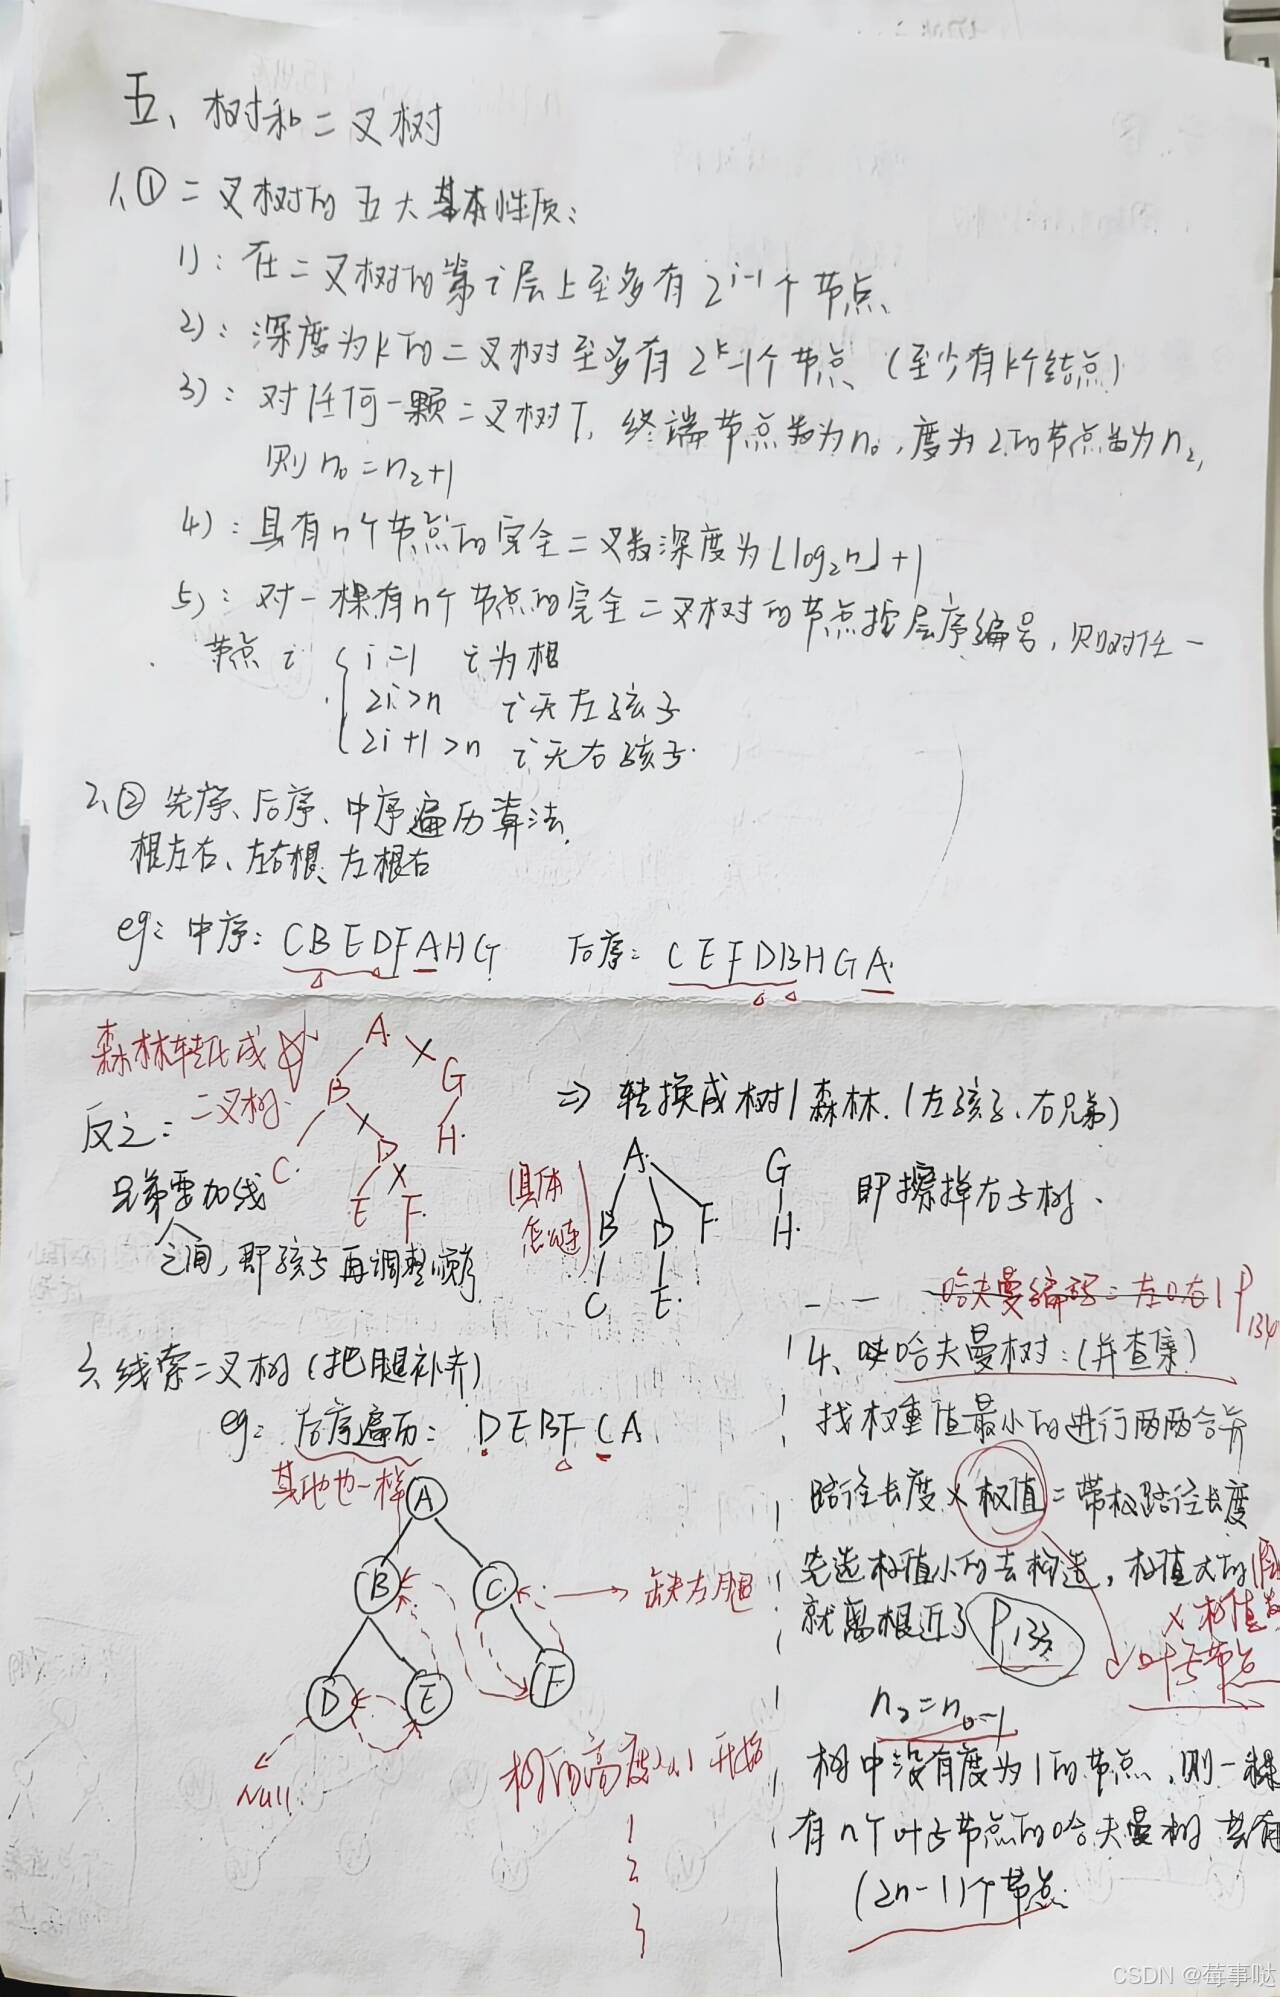 五、树和二叉树
1、① 二叉树的五大基本性质:
1): 在二叉树的第i层上至多有2^{i-1}个节点、
2): 深度为k的二叉树至多有2^k-1个节点、(至少有k个结点)
3): 对任何一颗二叉树T, 终端节点数为n₀,度为2的节点数为n₂,
则n₀=n₂+1
4): 具有n个节点的完全二叉数深度为⌊log₂n⌋+1
5): 对一棵有n个节点的完全二叉树的节点按层序编号,则对任一
节点i { i=1 i为根
2i>n i无左孩子
2i+1>n i无右孩子.
2、② 先序、后序、中序遍历算法.
根左右、左右根、左根右
eg: 中序: CBEDFAHG 后序: CEFDBHGA
森林转化成
二叉树.
反之:
兄弟要加线
之间,即孩子再调整顺序
A
B G
C D H
E F
⇒ 转换成树/森林.(左孩子、右兄弟)
具体
怎么连
A G
B D F H
C E
即擦掉右子树.
3、线索二叉树(把腿补齐)
eg: 后序遍历: DEBFCA
其他也一样
A
B C
D E F
缺左腿
Null
树的高度从1开始
1
2
3
哈夫曼编码:左0右1 P134
4、哈夫曼树:(并查集)
找权重值最小的进行两两合并
路径长度×权值=带权路径长度
先选权值小的去构造,权值大的
就离根近了 P133
×权值
叶子节点
n₂=n₀-1
树中没有度为1的节点,则一棵
有n个叶子节点的哈夫曼树共有
(2n-1)个节点
CSDN @莓事哒